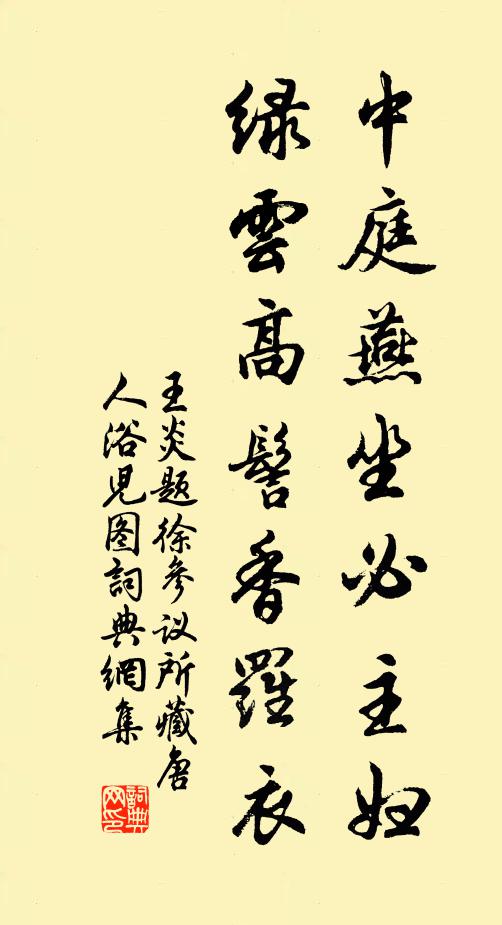 中庭燕坐必主妇
绿雲高髻香羅衣
王炎题徐参议所藏唐
人浴児图詞典網集
詞典
网印